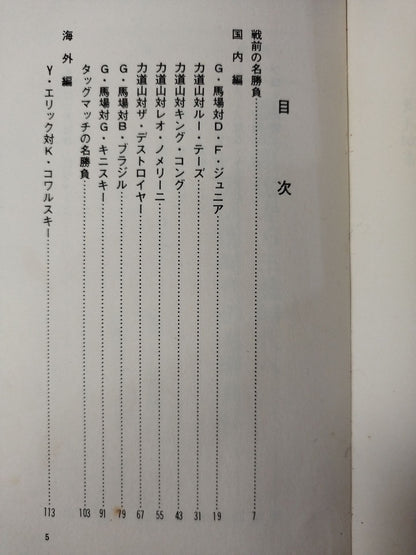 目次
戦前の名勝負…………7
国内編
G・馬場対D・F・ジュニア…………19
力道山対ルー・テーズ…………31
力道山対キング・コング…………43
力道山対レオ・ノメリーニ…………55
力道山対ザ・デストロイヤー…………67
G・馬場対B・ブラジル…………79
G・馬場対G・キニスキー…………91
タッグマッチの名勝負…………103
海外編
Y・エリック対K・コワルスキー…………113
5